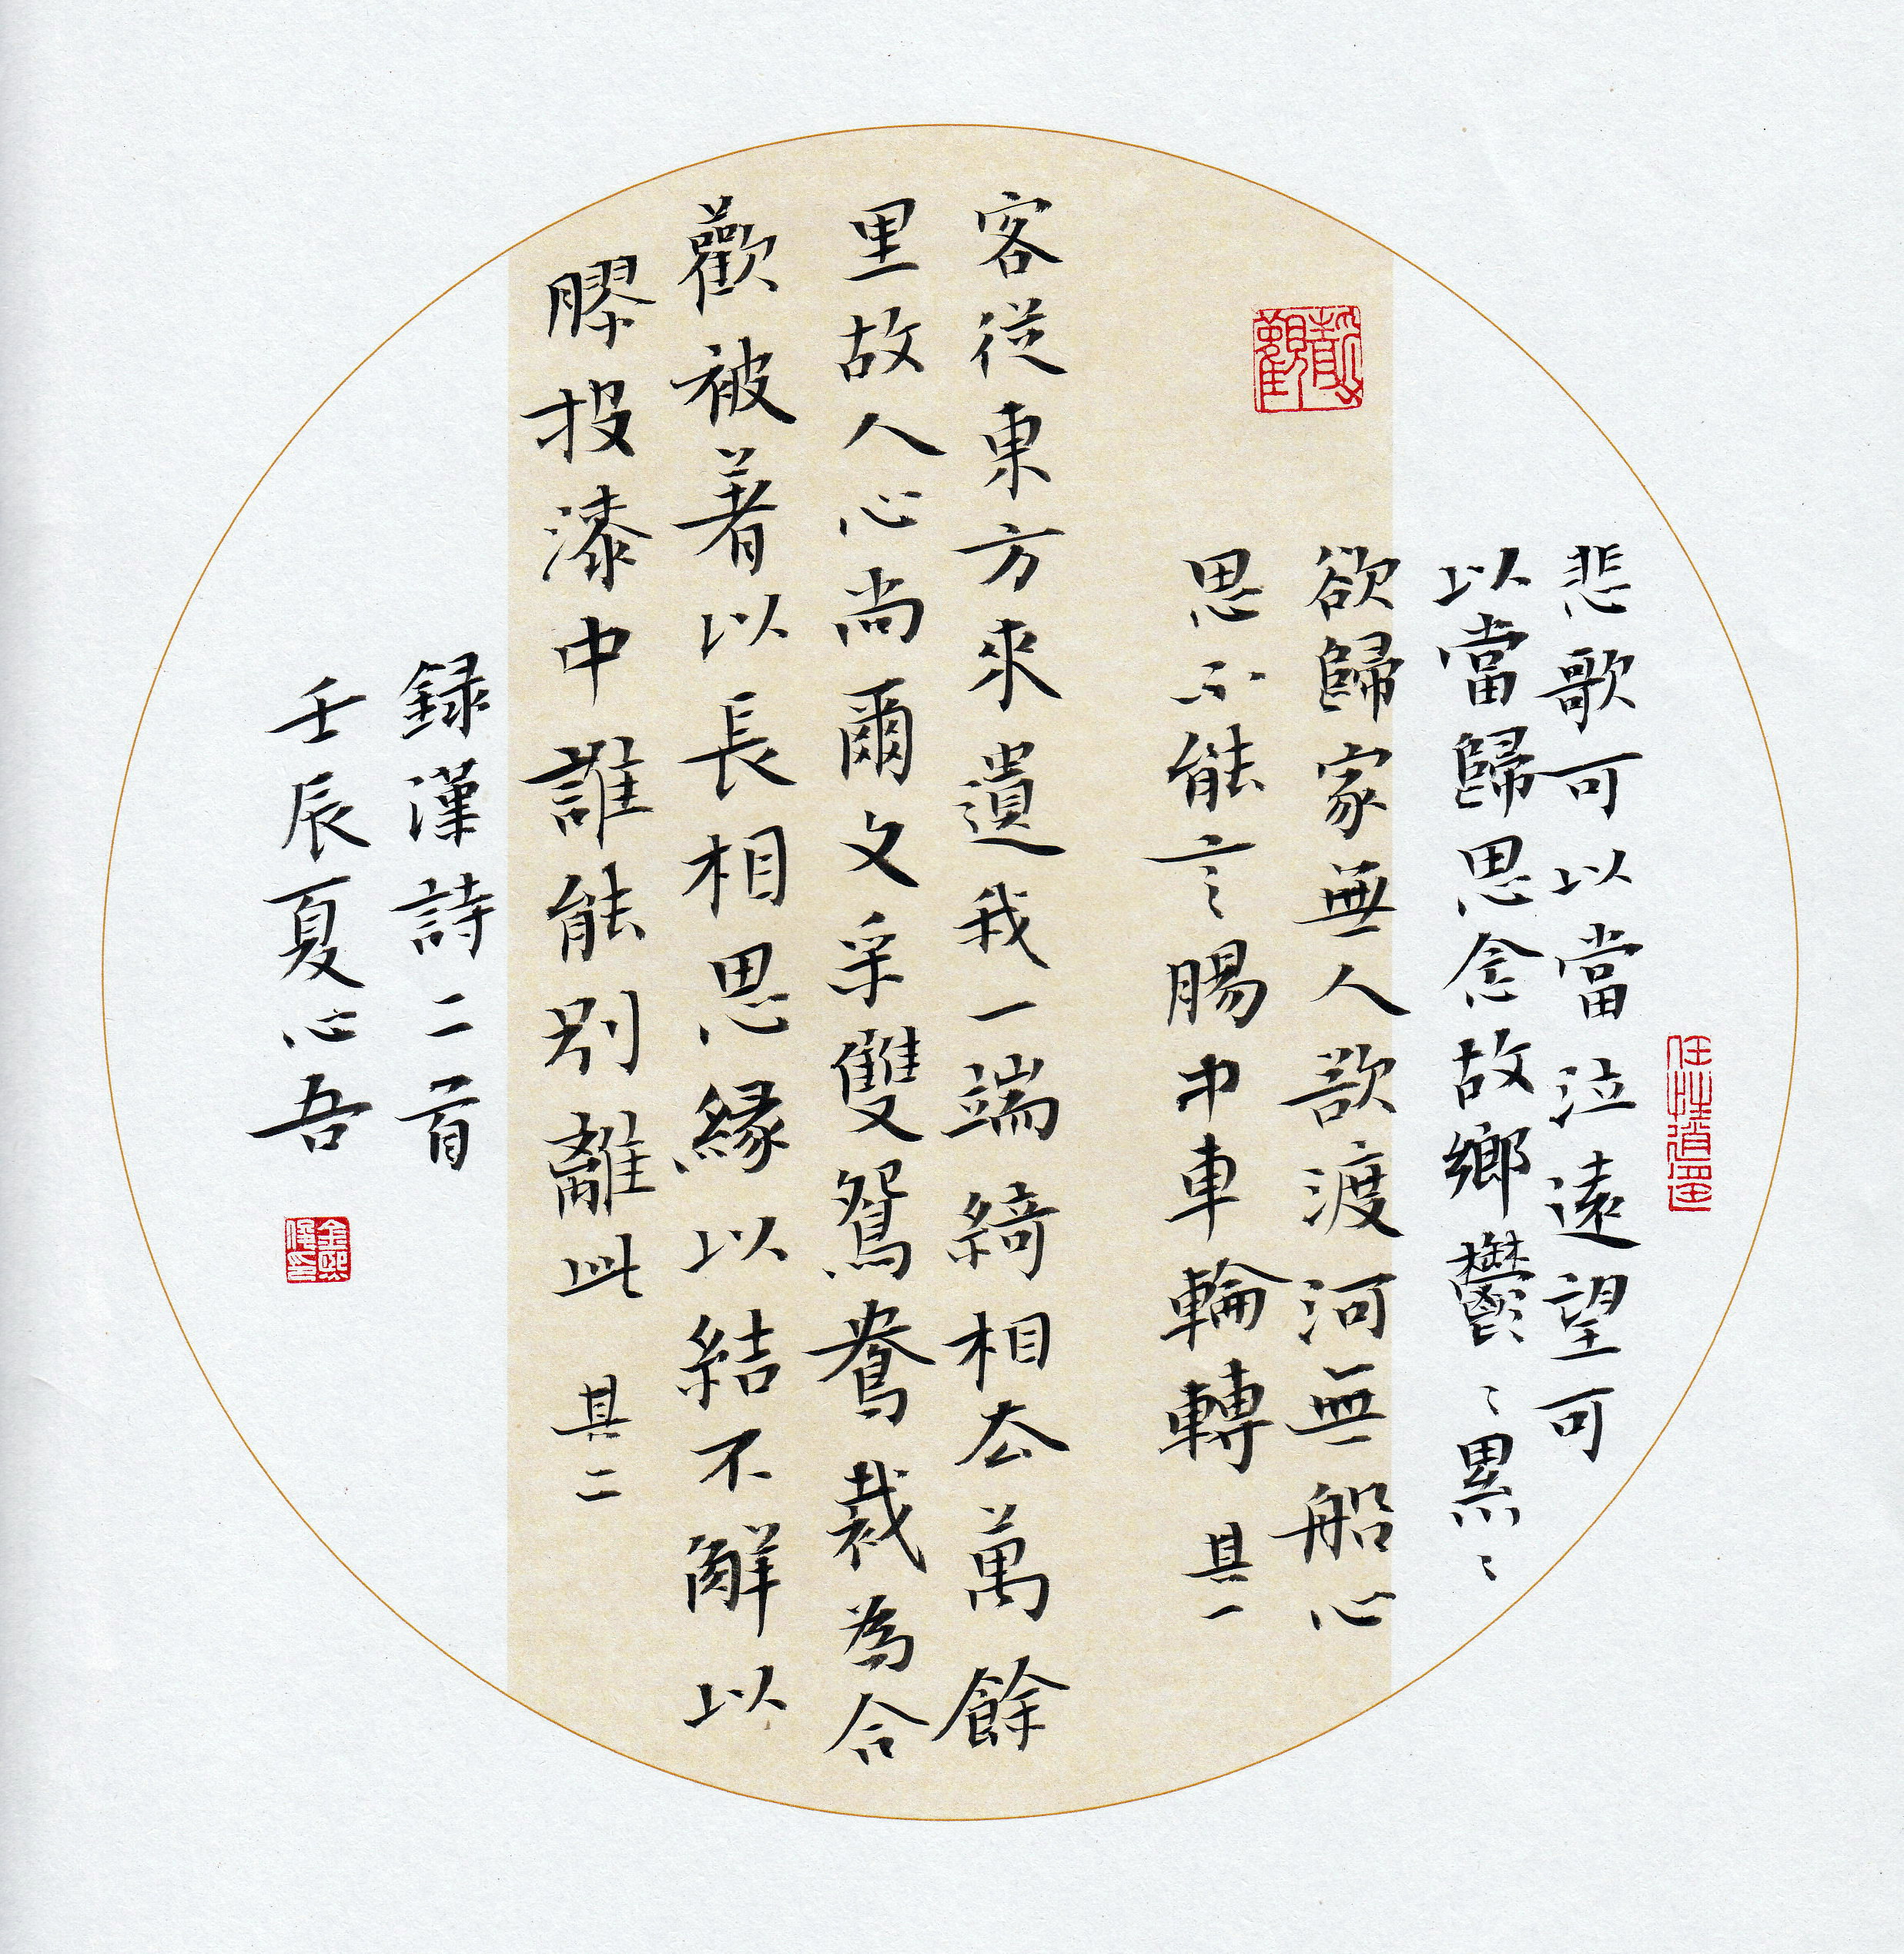 悲歌可以當泣遠望可
以當歸思念故鄉鬱〻累〻
欲歸家無人欲渡河無船心
思不能言〻腸中車輪轉 其一
客從東方來遺我一端綺相去萬餘
里故人心尚爾文采雙鴛鴦裁為合
歡被著以長相思緣以結不解以
膠投漆中誰能別離此 其二
錄漢詩二首
壬辰夏心吾
任性逍遙
靜觀